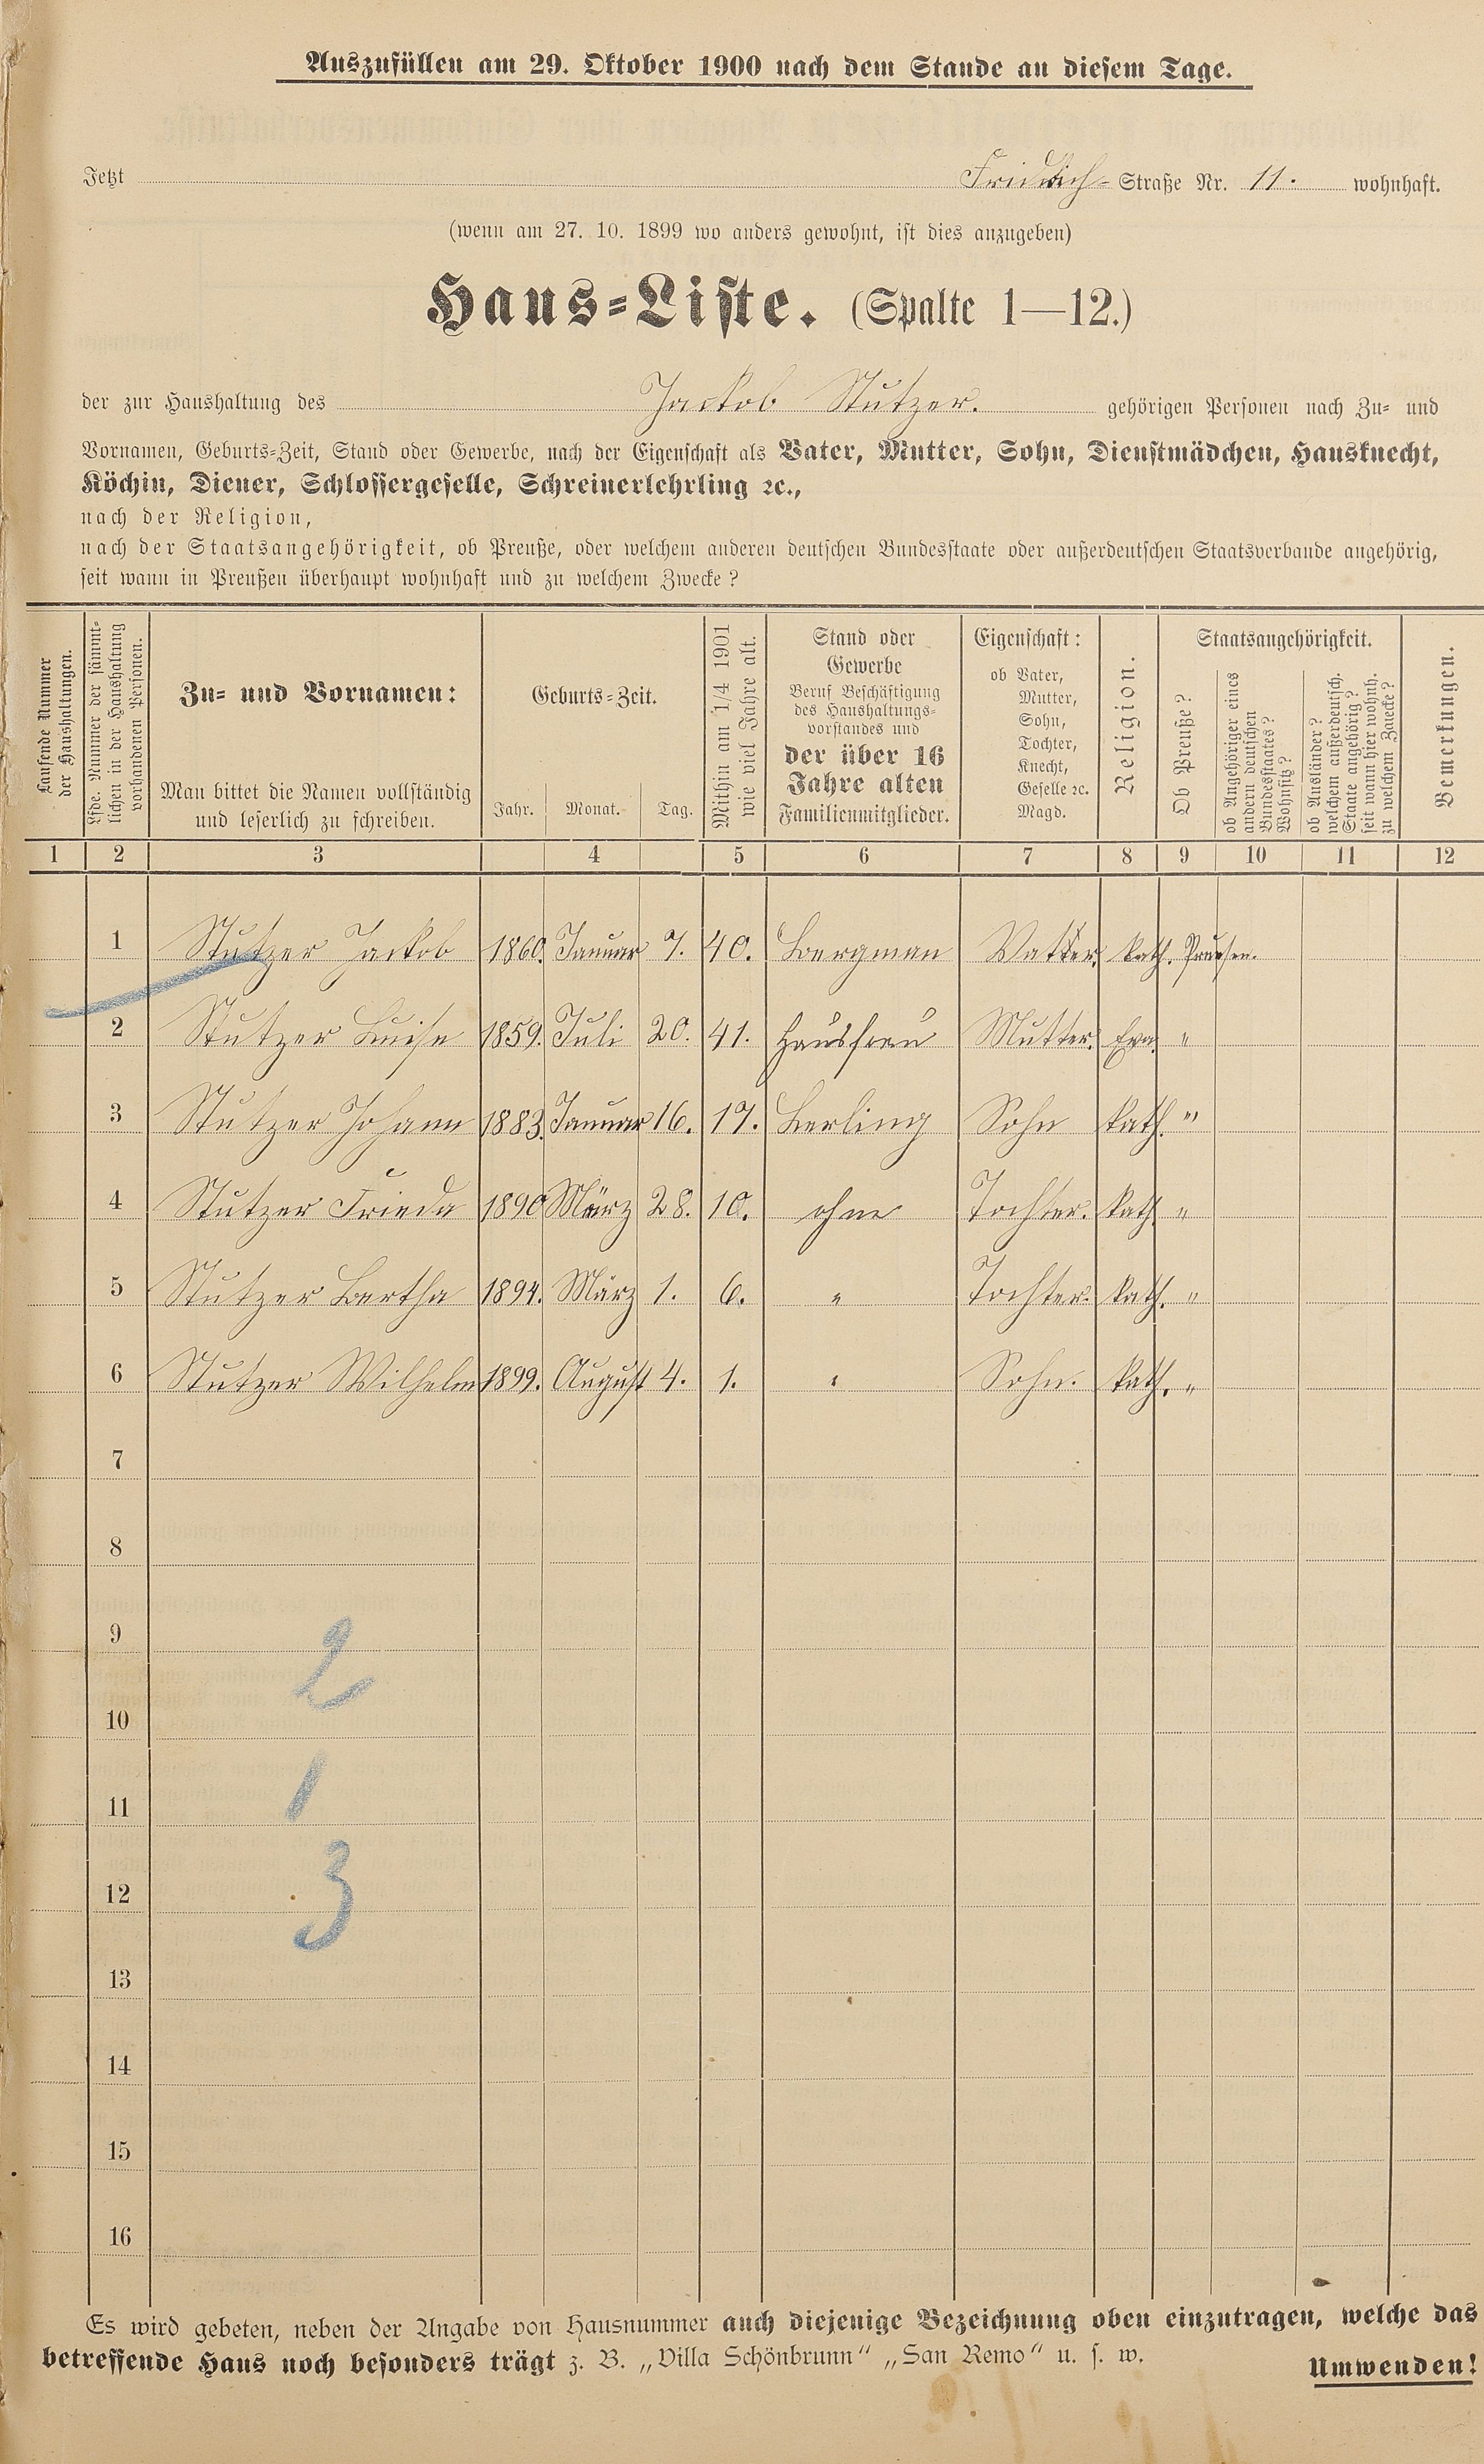 Auszufüllen am 29. Oktober 1900 nach dem Stande an diesem Tage.
Jetzt Fridrich-Straße Nr. 11. wohnhaft.
(wenn am 27. 10. 1899 wo anders gewohnt, ist dies anzugeben)
Haus-Liste. (Spalte 1—12.)
der zur Haushaltung des Jackob Stutzer. gehörigen Personen nach Zu- und
Vornamen, Geburts-Zeit, Stand oder Gewerbe, nach der Eigenschaft als Vater, Mutter, Sohn, Dienstmädchen, Hausknecht,
Köchin, Diener, Schlossergeselle, Schreinerlehrling ꝛc.,
nach der Religion,
nach der Staatsangehörigkeit, ob Preuße, oder welchem anderen deutschen Bundesstaate oder außerdeutschen Staatsverbande angehörig,
seit wann in Preußen überhaupt wohnhaft und zu welchem Zwecke?
Laufende Nummer
der Haushaltungen.
Lfde. Nummer der sämmt-
lichen in der Haushaltung
vorhandenen Personen.
Zu- und Vornamen:
Man bittet die Namen vollständig
und leserlich zu schreiben.
Geburts-Zeit.
Jahr. Monat. Tag.
Mithin am 1/4 1901
wie viel Jahre alt.
Stand oder
Gewerbe
Beruf Beschäftigung
des Haushaltungs-
vorstandes und
der über 16
Jahre alten
Familienmitglieder.
Eigenschaft:
ob Vater,
Mutter,
Sohn,
Tochter,
Knecht,
Geselle ꝛc.
Magd.
Religion.
Staatsangehörigkeit.
Ob Preuße?
ob Angehöriger eines
andern deutschen
Bundesstaates?
Wohnsitz?
ob Ausländer?
welchem außerdeutsch.
Staate angehörig?
seit wann hier wohnh.
zu welchem Zwecke?
Bemerkungen.
1 2 3 4 5 6 7 8 9 10 11 12
1 Stutzer Jackob 1860. Januar 7. 40. Bergman Vatter. kath. Preusen.
2 Stutzer Luise 1859. Juli 20. 41. Hausfrau Mutter. Eva. "
3 Stutzer Johann 1883. Januar 16. 17. Lerling Sohn kath. "
4 Stutzer Frieda 1890 März 28. 10. ohne Tochter. kath "
5 Stutzer Bertha 1894. März 1. 6. " Tochter. kath. "
6 Stutzer Wilhelm 1899. August 4. 1. " Sohn. kath. "
7
8
9
2
10
11
1
12
3
13
14
15
16
Es wird gebeten, neben der Angabe von Hausnummer auch diejenige Bezeichnung oben einzutragen, welche das
betreffende Haus noch besonders trägt z. B. „Villa Schönbrunn" „San Remo" u. s. w.
Umwenden!